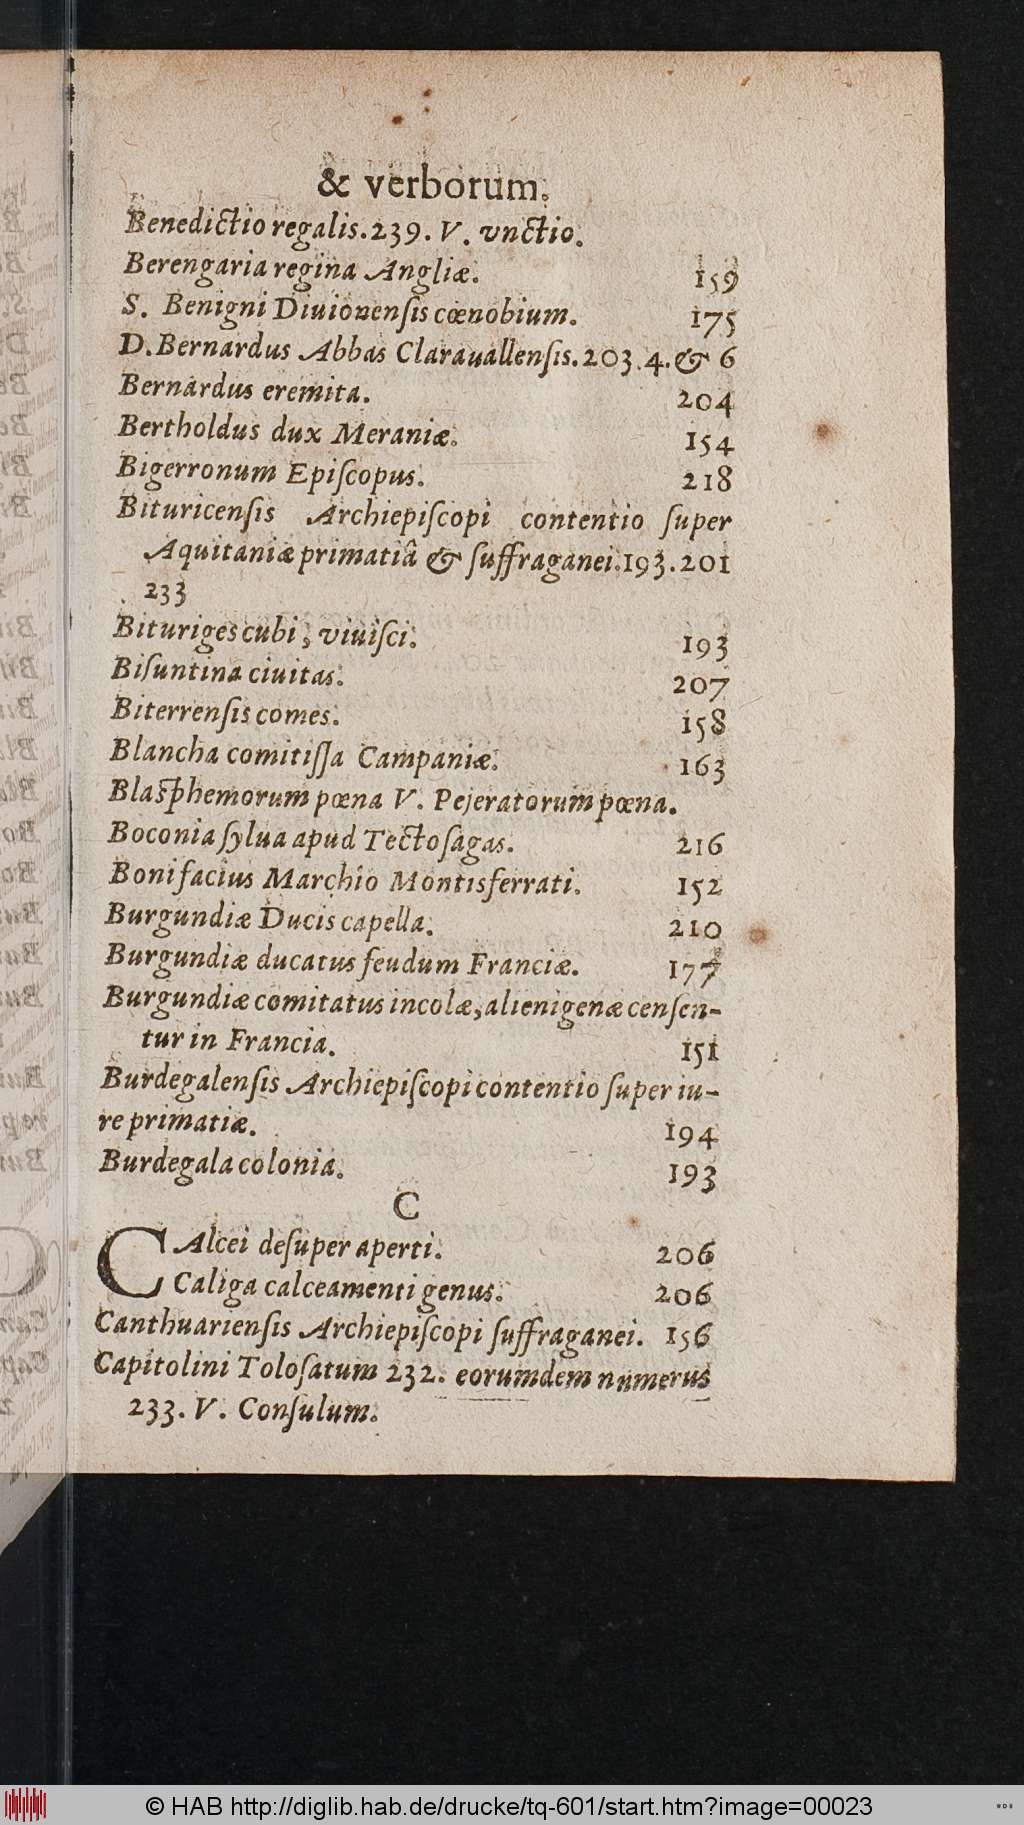 & verborum.
Benedictio regalis. 239. V. vnctio.
Berengaria regina Angliæ. 159
S. Benigni Diuionensis cœnobium. 175
D. Bernardus Abbas Clarauallensis. 203. 4. & 6
Bernardus eremita. 204
Bertholdus dux Meraniæ. 154
Bigerronum Epiſcopus. 218
Bituricenſis Archiepiſcopi contentio ſuper
Aquitaniæ primatiâ & ſuffraganei. 193. 201
233
Bituriges cubi, viuiſci. 193
Biſuntina ciuitas. 207
Biterrenſis comes. 158
Blancha comitiſſa Campaniæ. 163
Blaſphemorum pœna V. Pejeratorum pœna.
Boconia ſylua apud Tectoſagas. 216
Bonifacius Marchio Montisferrati. 152
Burgundiæ Ducis capella. 210
Burgundiæ ducatus feudum Franciæ. 177
Burgundiæ comitatus incolæ, alienigenæ cenſen-
tur in Francia. 151
Burdegalenſis Archiepiſcopi contentio ſuper iu-
re primatiæ. 194
Burdegala colonia. 193
C
CAlcei deſuper aperti. 206
Caliga calceamenti genus. 206
Canthuarienſis Archiepiſcopi ſuffraganei. 156
Capitolini Toloſatum 232. eorumdem numerus
233. V. Conſulum.
© HAB http://diglib.hab.de/drucke/tq-601/start.htm?image=00023